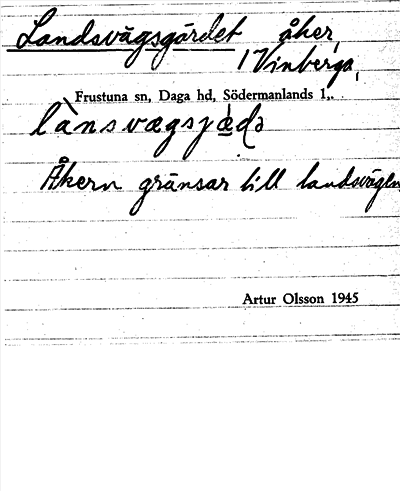 Landsvägsgärdet åker,
i Vinberga,
Frustuna sn, Daga hd, Södermanlands l,.
lànsvægsjæ̲ḍə
Åkern gränsar till landsvägen
Artur Olsson 1945